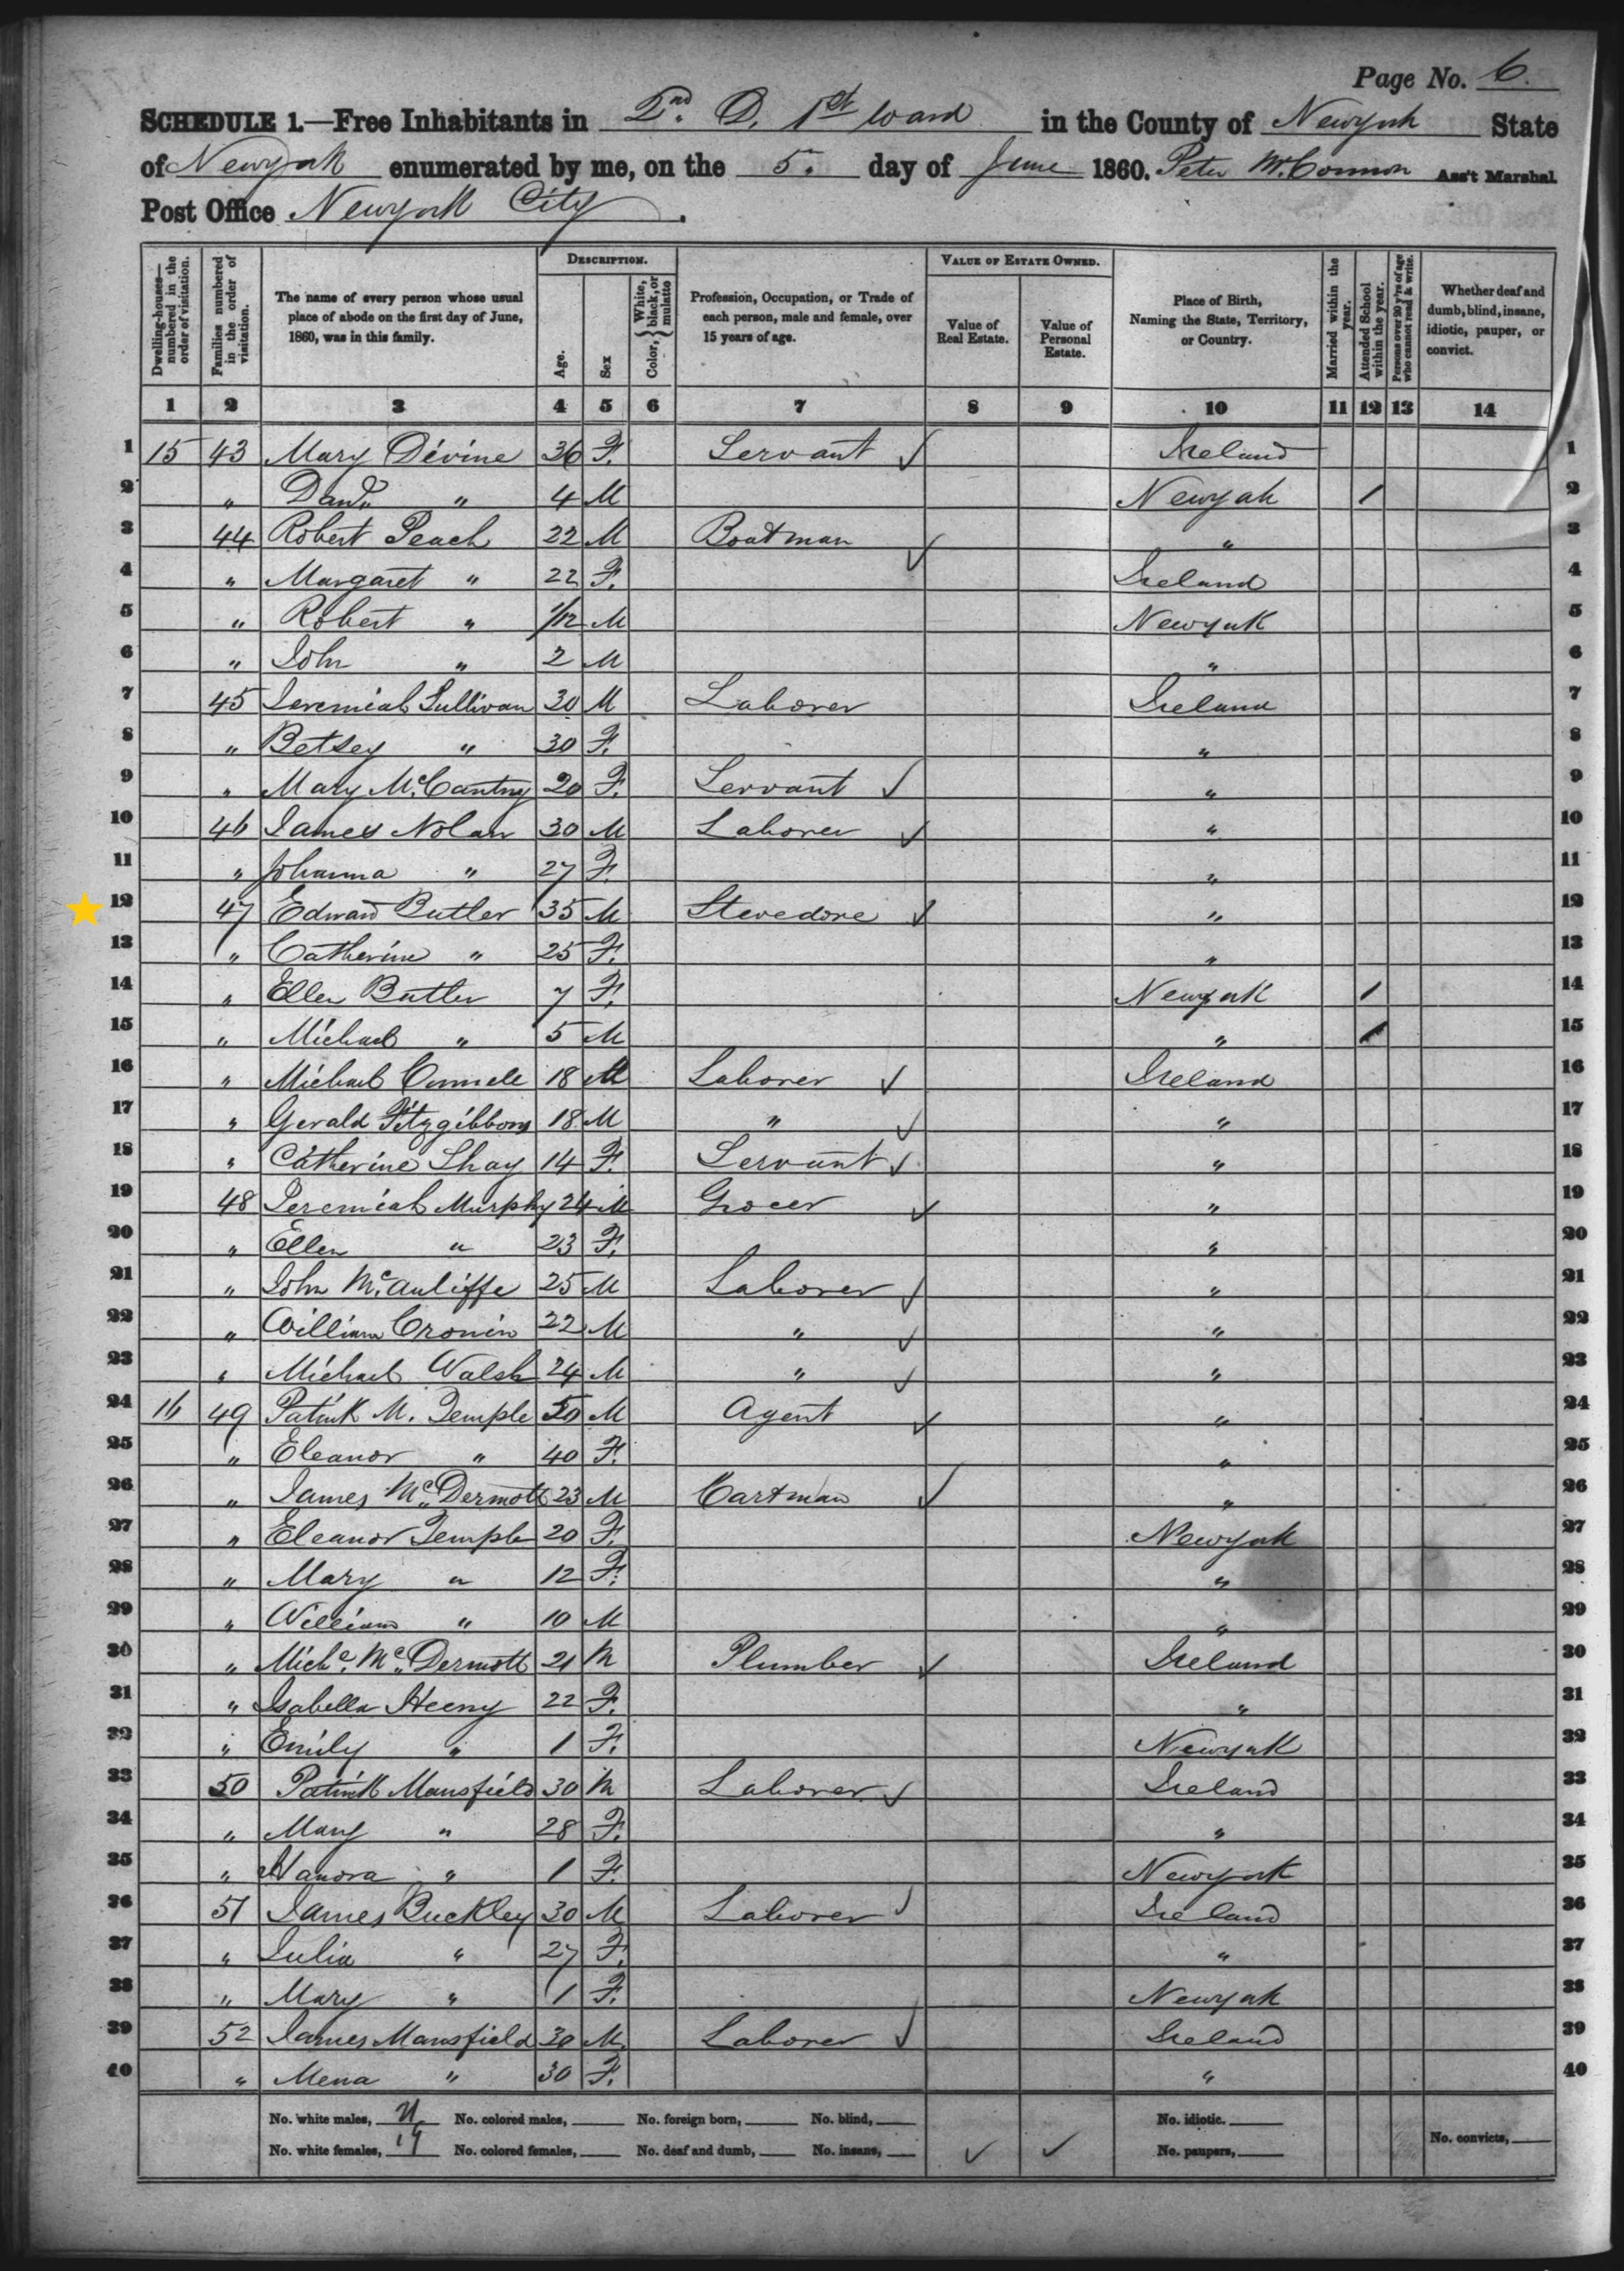 Page No. 6.
SCHEDULE 1.—Free Inhabitants in 2nd. D. 1st Ward in the County of Newyork State
of Newyork enumerated by me, on the 5. day of June 1860. Peter McConnon Ass't Marshal.
Post Office Newyork City.
Dwelling-houses—numbered in the order of visitation.
Families numbered in the order of visitation.
The name of every person whose usual place of abode on the first day of June, 1860, was in this family.
DESCRIPTION.
Age.
Sex
Color, { White, black, or mulatto
Profession, Occupation, or Trade of each person, male and female, over 15 years of age.
VALUE OF ESTATE OWNED.
Value of Real Estate.
Value of Personal Estate.
Place of Birth, Naming the State, Territory, or Country.
Married within the year.
Attended School within the year.
Persons over 20 y'rs of age who cannot read & write.
Whether deaf and dumb, blind, insane, idiotic, pauper, or convict.
1 2 3 4 5 6 7 8 9 10 11 12 13 14
1 15 43 Mary Devine 36 F. Servant ✓ Ireland 1
2 " " 4 M Newyork / 2
3 44 Robert Peach 22 M Boatman ✓ " 3
4 " Margaret " 22 F. Ireland 4
5 " Robert " 1/12 M Newyork 5
6 " John " 2 M " 6
7 45 Jeremiah Sullivan 30 M Laborer Ireland 7
8 " Betsey " 30 F. " 8
9 " Mary 20 F. Servant ✓ " 9
10 46 James Nolan 30 M Laborer ✓ " 10
11 " Johanna " 27 F. " 11
12 47 Edward Butler 35 M Stevedore ✓ " 12
13 " Catherine " 25 F. " 13
14 " Ellen Butler 7 F. Newyork / 14
15 " Michael " 5 M " / 15
16 " Michael 18 M Laborer ✓ Ireland 16
17 " Gerald Fitzgibbons 18 M " ✓ " 17
18 " Catherine Shay 14 F. Servant ✓ " 18
19 48 Jeremiah Murphy 24 M Grocer ✓ " 19
20 " Ellen " 23 F. " 20
21 " John McAuliffe 25 M Laborer ✓ " 21
22 " William Cronin 22 M " ✓ " 22
23 " Michael Walsh 24 M " ✓ " 23
24 16 49 Patrick M. Temple 50 M Agent ✓ " 24
25 " Eleanor " 40 F. " 25
26 " James McDermott 23 M Cartman ✓ " 26
27 " Eleanor Temple 20 F. Newyork 27
28 " Mary " 12 F. " 28
29 " William " 10 M " 29
30 " Michl. McDermott 21 M Plumber ✓ Ireland 30
31 " Isabella Heeny 22 F. " 31
32 " Emily " 1 F. Newyork 32
33 50 Patrick Mansfield 30 M Laborer ✓ Ireland 33
34 " Mary " 28 F. " 34
35 " Hanora " 1 F. Newyork 35
36 51 James Buckley 30 M Laborer ✓ Ireland 36
37 " Julia " 27 F. " 37
38 " Mary " 1 F. Newyork 38
39 52 James Mansfield 30 M. Laborer ✓ Ireland 39
40 " Mena " 30 F. " 40
No. white males, 21 No. colored males, No. foreign born, No. blind, No. idiotic.
No. white females, 19 No. colored females, No. deaf and dumb, No. insane, ✓ ✓ No. paupers, No. convicts,